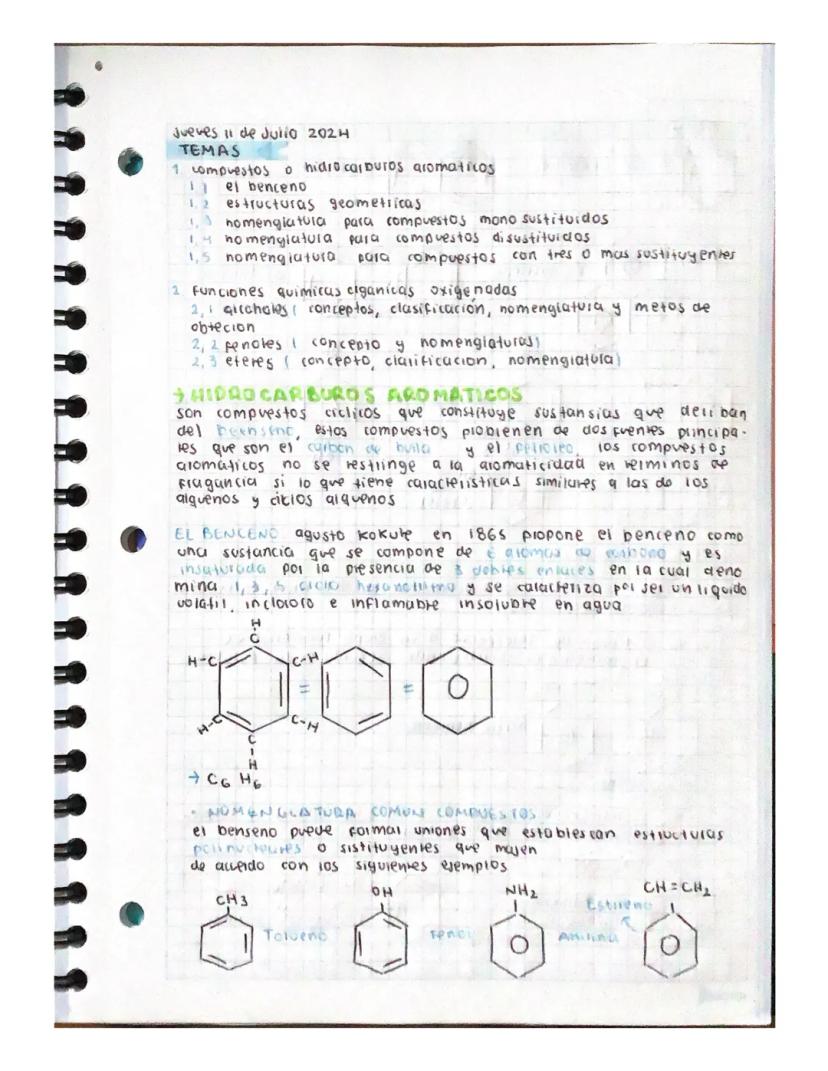 Jueves 11 de Julio 2024
TEMAS
1 compuestos o hidrocarburos aromaticos
1,1 el benceno
1,2 estructuras geometricas
1,3 nomenglatura para compuestos mono sustituidos
1,4 nomenglatura para compuestos disustituidos
1,5 nomenglatura para compuestos con tres o mas sustituyentes
2 Funciones quimicas organicas oxigenadas
2,1 alcholes ( conceptos, clasificación, nomenglatura y metos de
obtecion
2,2 fenoles ( concepto y nomenglaturas)
2,3 eteres ( concepto, clarificacion, nomenglatura)
→ HIDROCARBUROS AROMATICOS
son compuestos ciclicos que constituye sustansias que deriban
del benseno, estos compuestos probienen de dos fuentes principa-
les que son el carbon de hulla y el petroleo, los compuestos
aromáticos no se restringe a la aromaticidad en terminos de
fragancia si lo que tiene caracteristicas similares a las de los
alquenos y ciclos alquenos
EL BENCENO agusto kokule en 1865 propone el benceno como
una sustancia que se compone de 6 atomos de carbono y es
insaturada por la presencia de 3 dobles enlaces en la cual deno
mina 1, 3, 5 ciclo hexanotrieno y se caracteriza por ser un liquido
volatil, incloloro e inflamable insoluble en agua
H-C
H-C C-H = = O
H-C C-H
C-H
→ C6 H6
• NOMENGLATURA COMUN COMPUESTOS
el benseno pueve formar uniones que establescan estructuras
polinucleares o sistituyentes que
de acuerdo con los siguientes ejemplos
CH3 OH NH2 CH=CH2
Estireno
Tolueno Fenol O Anilina O